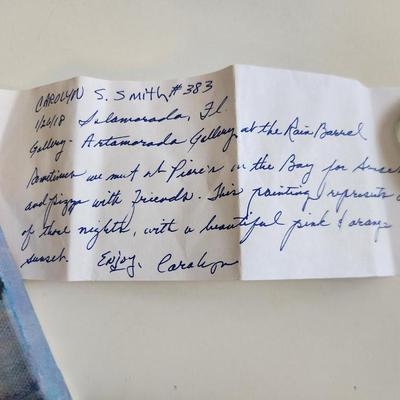 CAROLYN S. SMITH #383
1/26/18 Islamorada, Fl.
Gallery - Artamorada Gallery at the Rain Barrel
Sometimes we meet at Pierre's on the Bay for sunset
and pizza with friends. This painting represents
of those nights, with a beautiful pink & orange
sunset. Enjoy, Carolyn